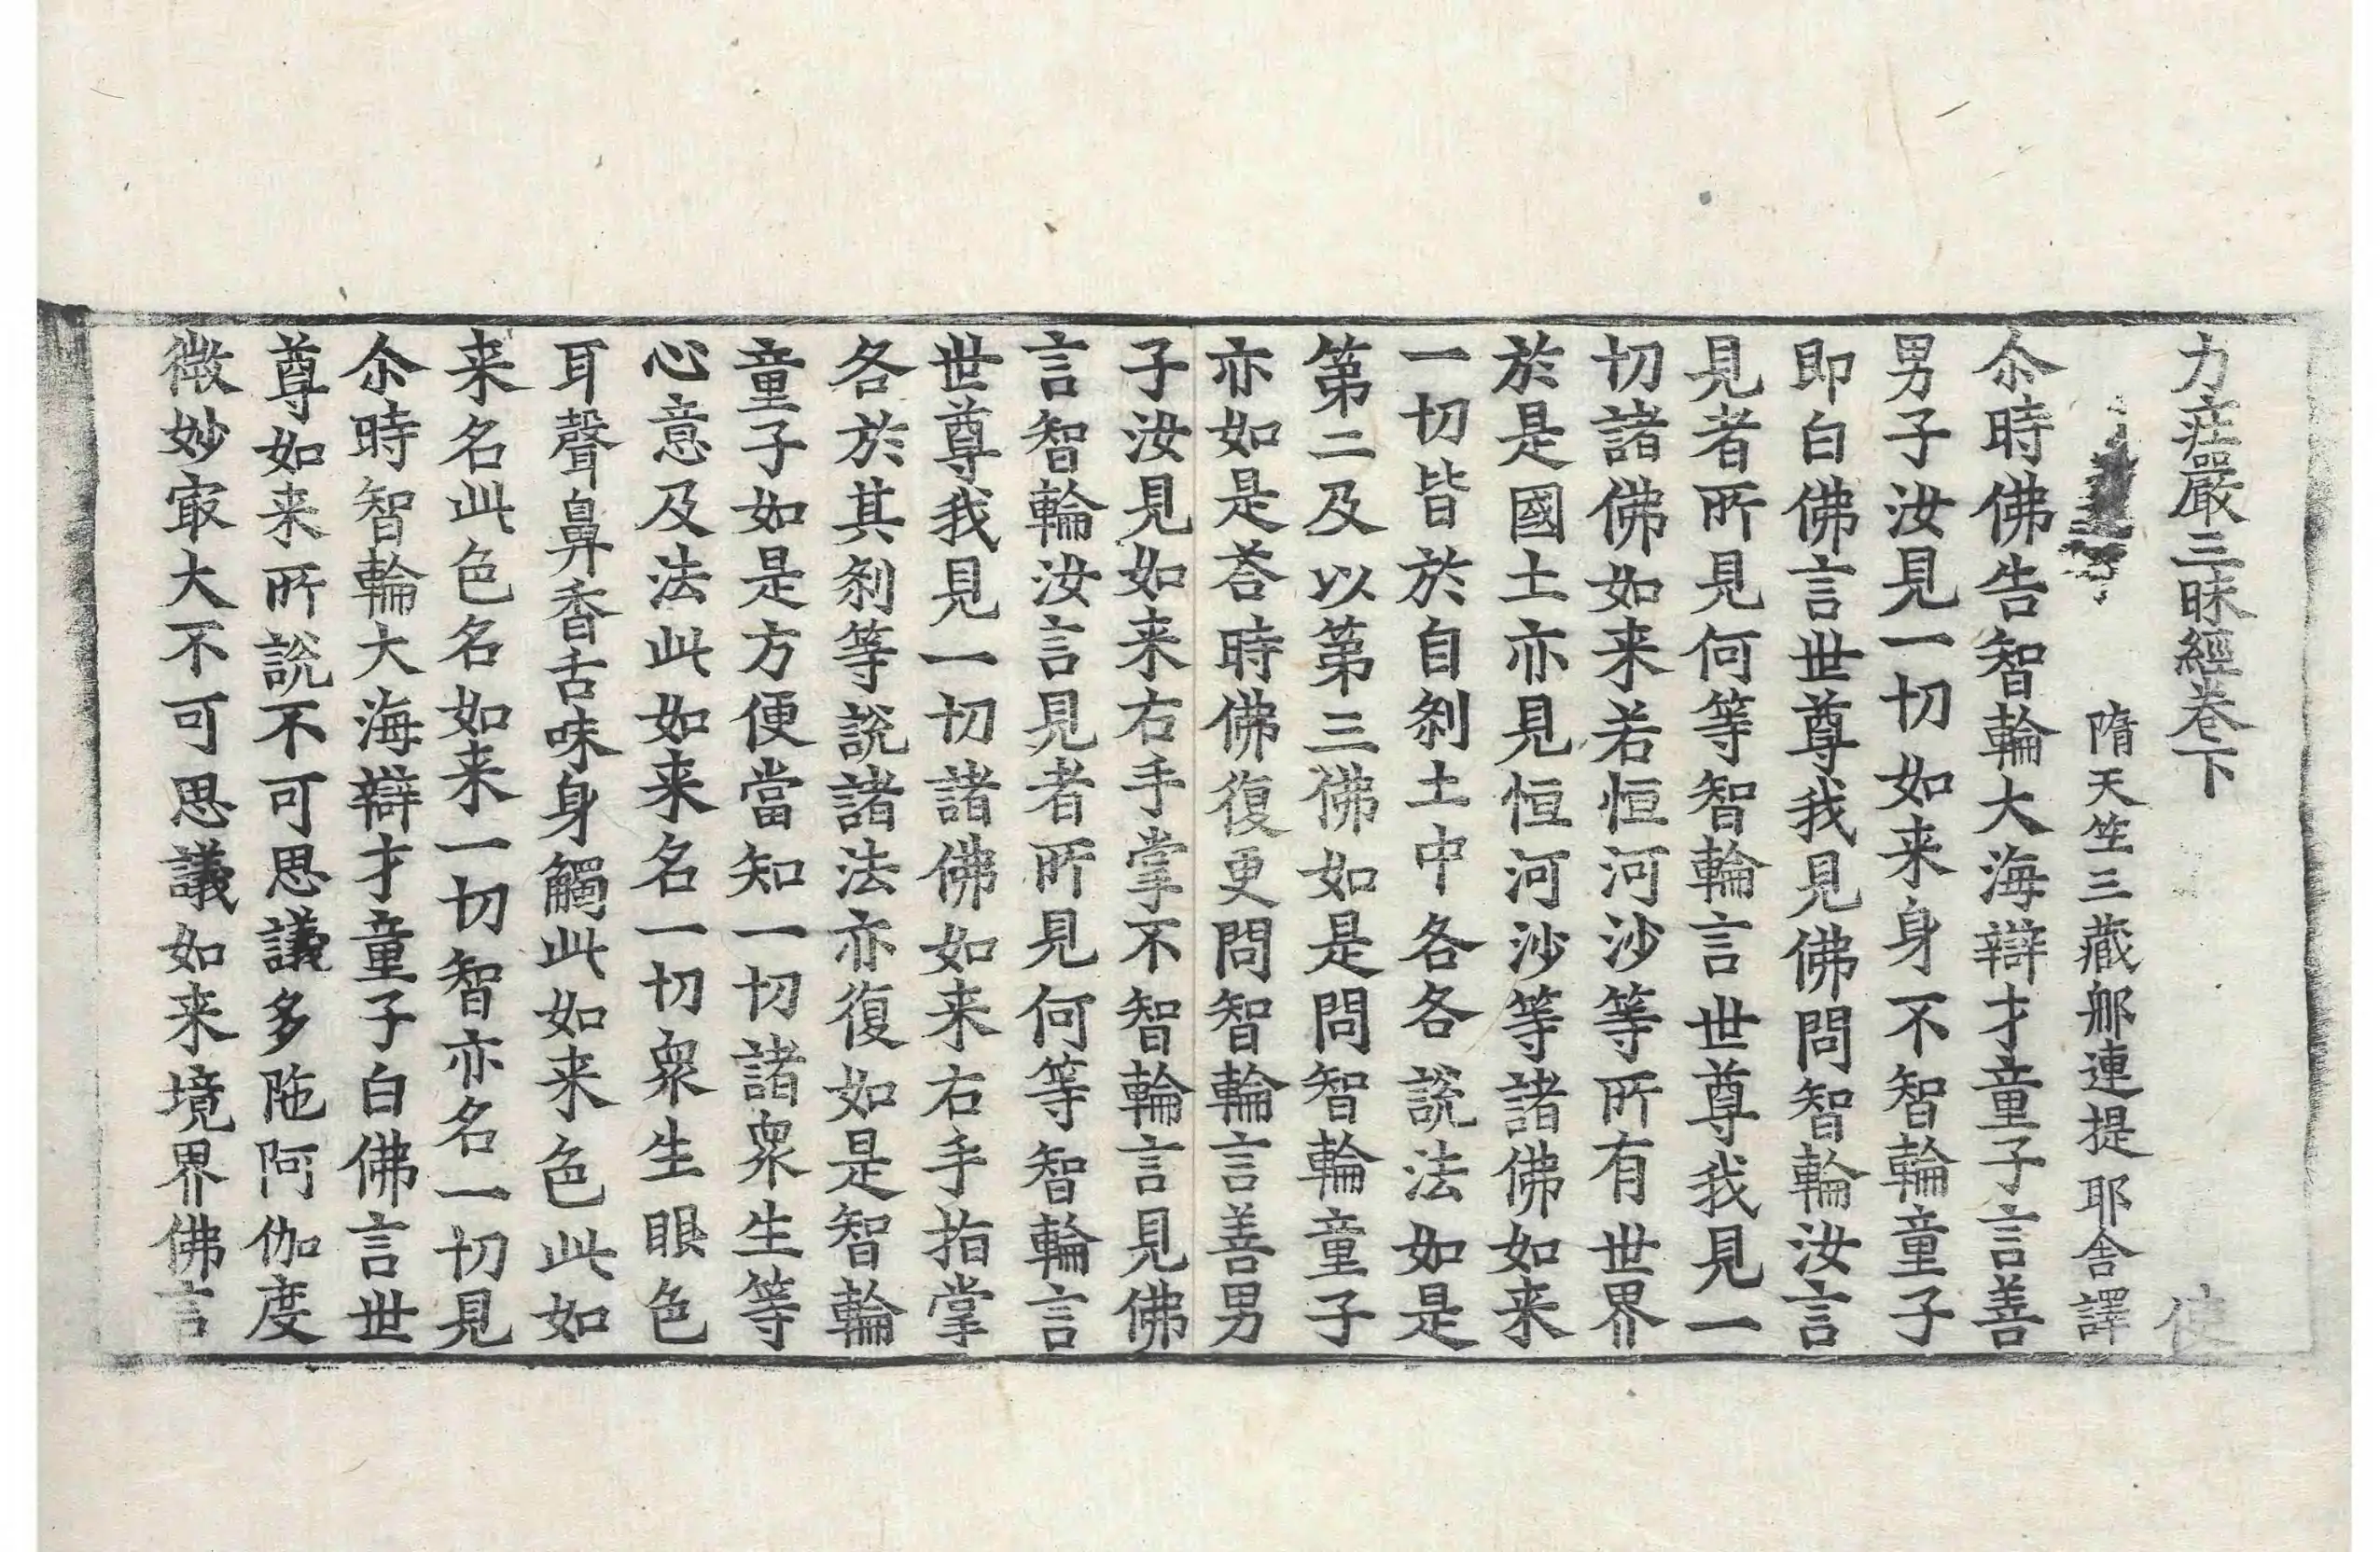 力疰嚴三昧經卷下　使
隋天竺三藏郍連提耶舍譯
尒時佛告智輪大海辯才童子言善
男子汝見一切如来身不智輪童子
即白佛言世尊我見佛問智輪汝言
見者所見何等智輪言世尊我見一
切諸佛如来若恒河沙等所有世界
於是國土亦見恒河沙等諸佛如来
一切皆於自刹土中各各說法如是
第二及以第三佛如是問智輪童子
亦如是荅時佛復更問智輪言善男
子汝見如来右手掌不智輪言見佛
言智輪汝言見者所見何等智輪言
世尊我見一切諸佛如来右手指掌
各於其刹等說諸法亦復如是智輪
童子如是方便當知一切諸衆生等
心意及法此如来名一切衆生眼色
耳聲鼻香舌味身觸此如来色此如
来名此色名如来一切智亦名一切見
尒時智輪大海辯才童子白佛言世
尊如来所說不可思議多陁阿伽度
微妙㝡大不可思議如来境界佛言